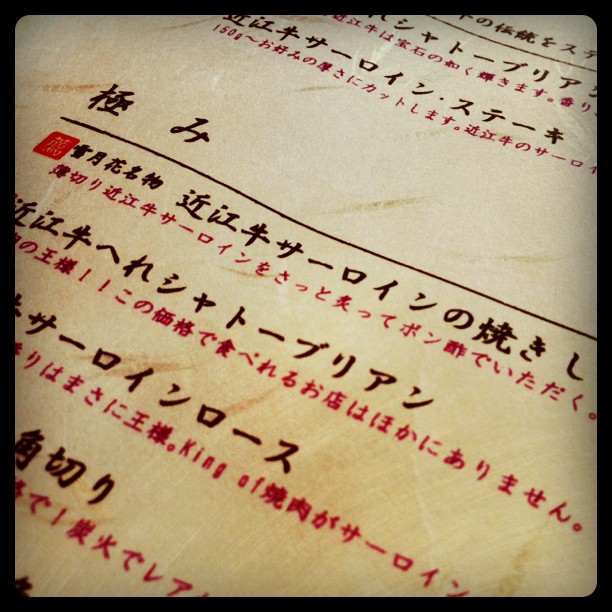 牛の伝統をステ
れシャトーブリアン
近江牛は宝石の如く輝きます。香り
近江牛サーロイン・ステーキ
150g〜お好みの厚さにカットします。近江牛のサーロイ
極み
雪月花名物 近江牛サーロインの焼きし
薄切り近江牛サーロインをさっと炙ってポン酢でいただく。
近江牛へれシャトーブリアン
の王様!!この価格で食べれるお店はほかにありません。
サーロインロース
りはまさに王様。King of焼肉がサーロイン
角切り
で!炭火でレア